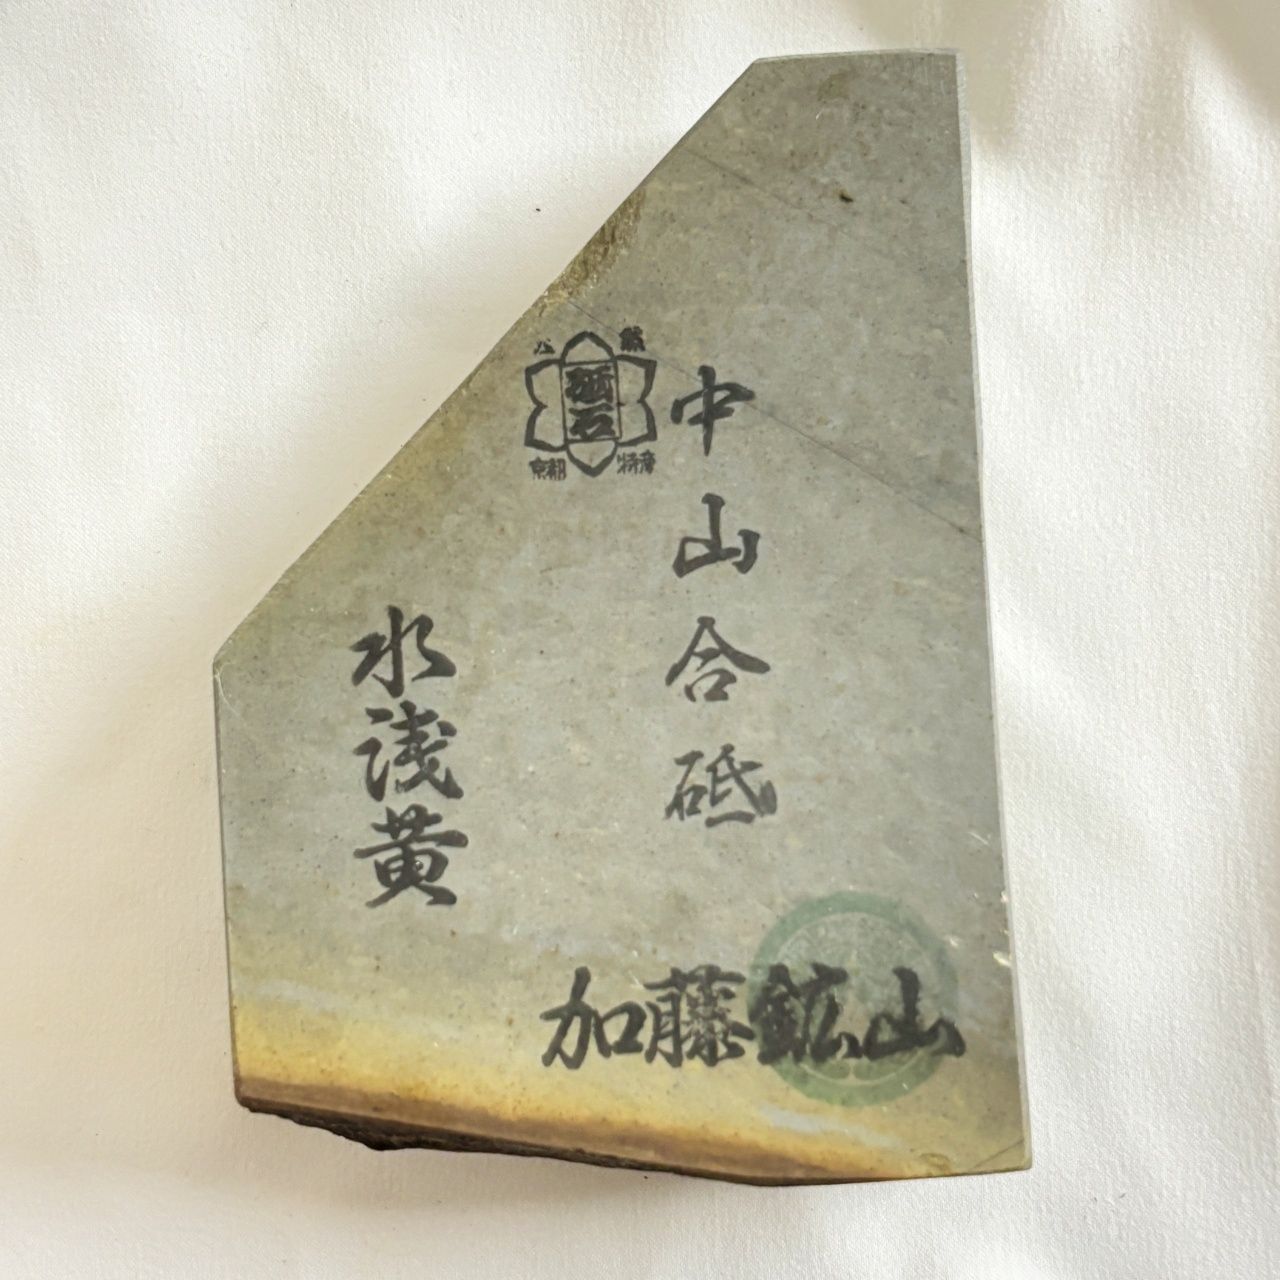 中山合砥
砥石
京都
特産
水浅黄
加藤鉱山